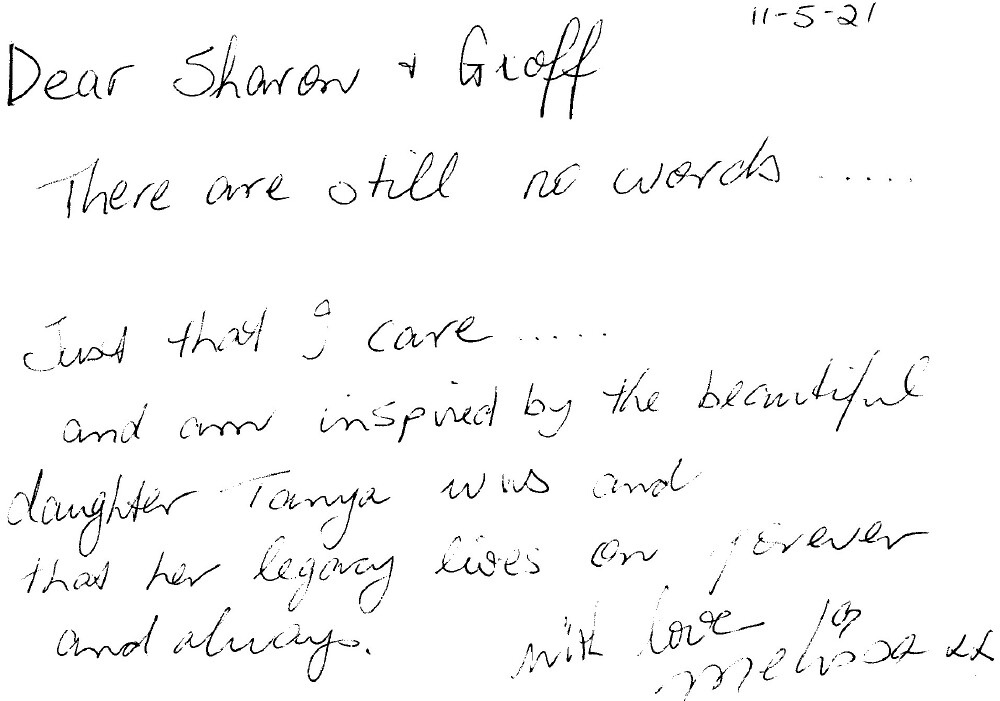 11-5-21
Dear Sharon + Geoff
There are still no words .....
Just that I care .....
and am inspired by the beautiful
daughter Tanya was and
that her legacy lives on forever
and always.
with love
Melissa xx